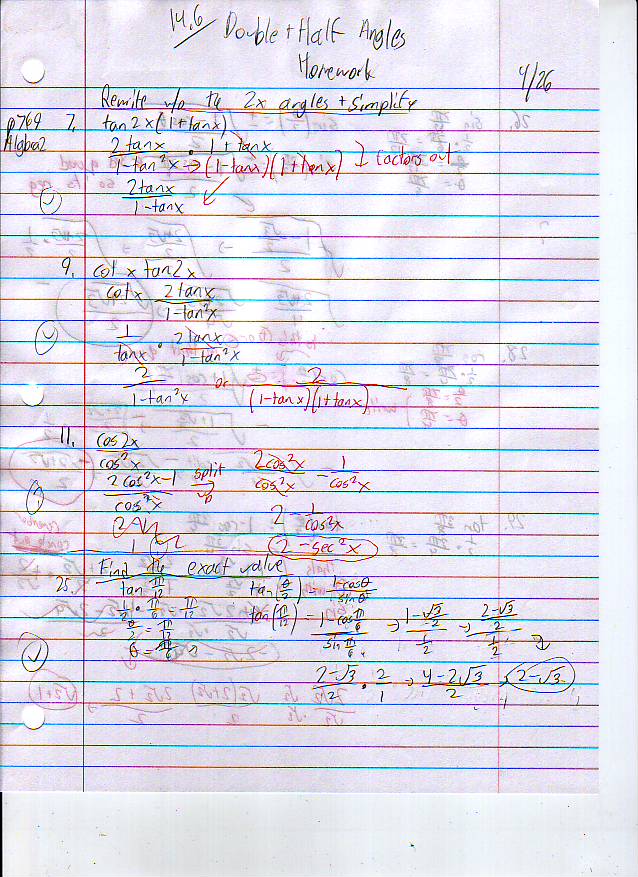 14.6 Double + Half Angles
Homework
4/26
Rewrite w/o the 2x angles + simplify
p769 7. tan 2x (1+tanx)
Algbra2
2 tanx / 1-tan²x · 1+tanx → (1-tanx)(1+tanx) ] factors out
2tanx / 1-tanx
9. cot x tan2x
cotx 2tanx / 1-tan²x
1 / tanx · 2tanx / 1-tan²x
2 / 1-tan²x or 2 / (1-tanx)(1+tanx)
11. cos2x / cos²x
2cos²x-1 / cos²x split → 2cos²x / cos²x - 1 / cos²x
2 - 1 / cos²x
2-sec²x
Find the exact value
25. tan π/12 tan(θ/2) = 1-cosθ / sinθ
1/2 · π/6 = π/12 tan(π/12) = 1-cos π/6 / sin π/6 → 1-√3/2 / 1/2 → 2-√3/2 / 1/2
θ/2 = π/12
θ = π/6
2-√3 / 2 · 2/1 → 4-2√3 / 2 → 2-√3